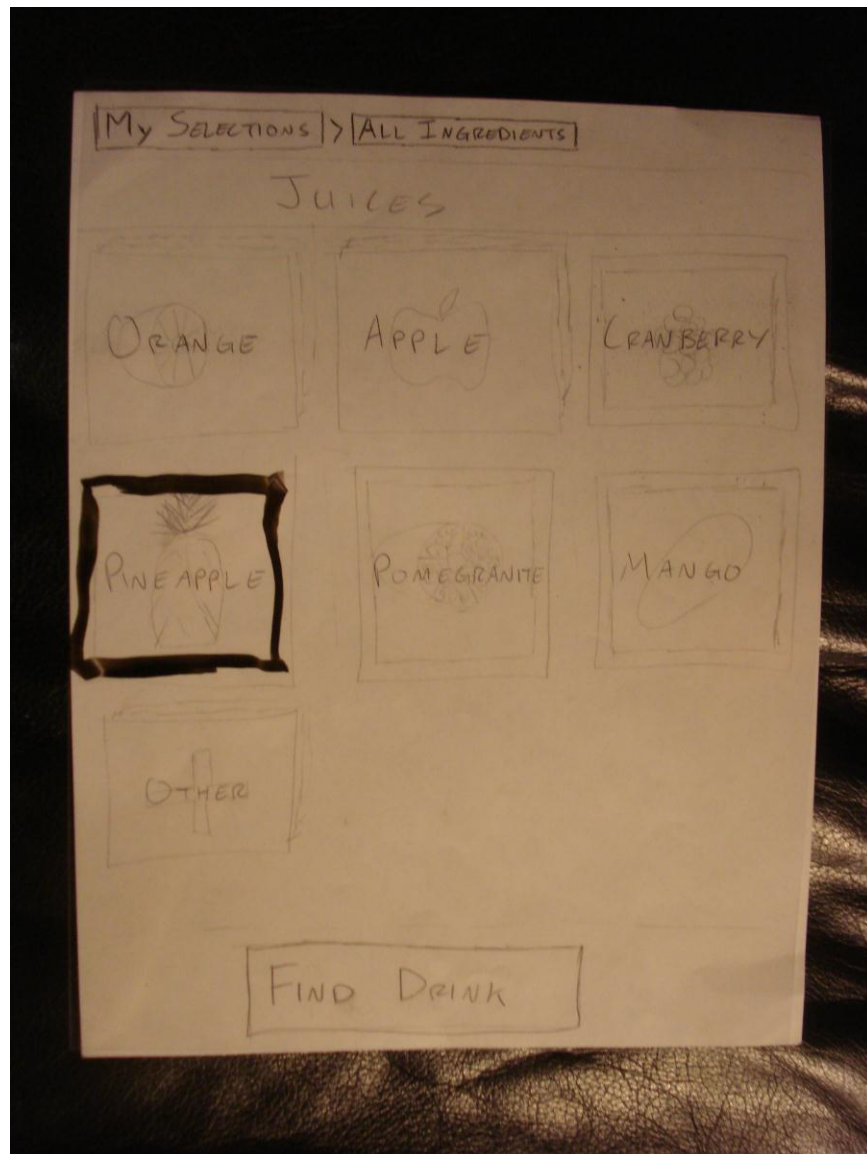 My SELECTIONS > ALL INGREDIENTS
JUICES
ORANGE APPLE CRANBERRY
PINEAPPLE POMEGRANITE MANGO
OTHER
FIND DRINK